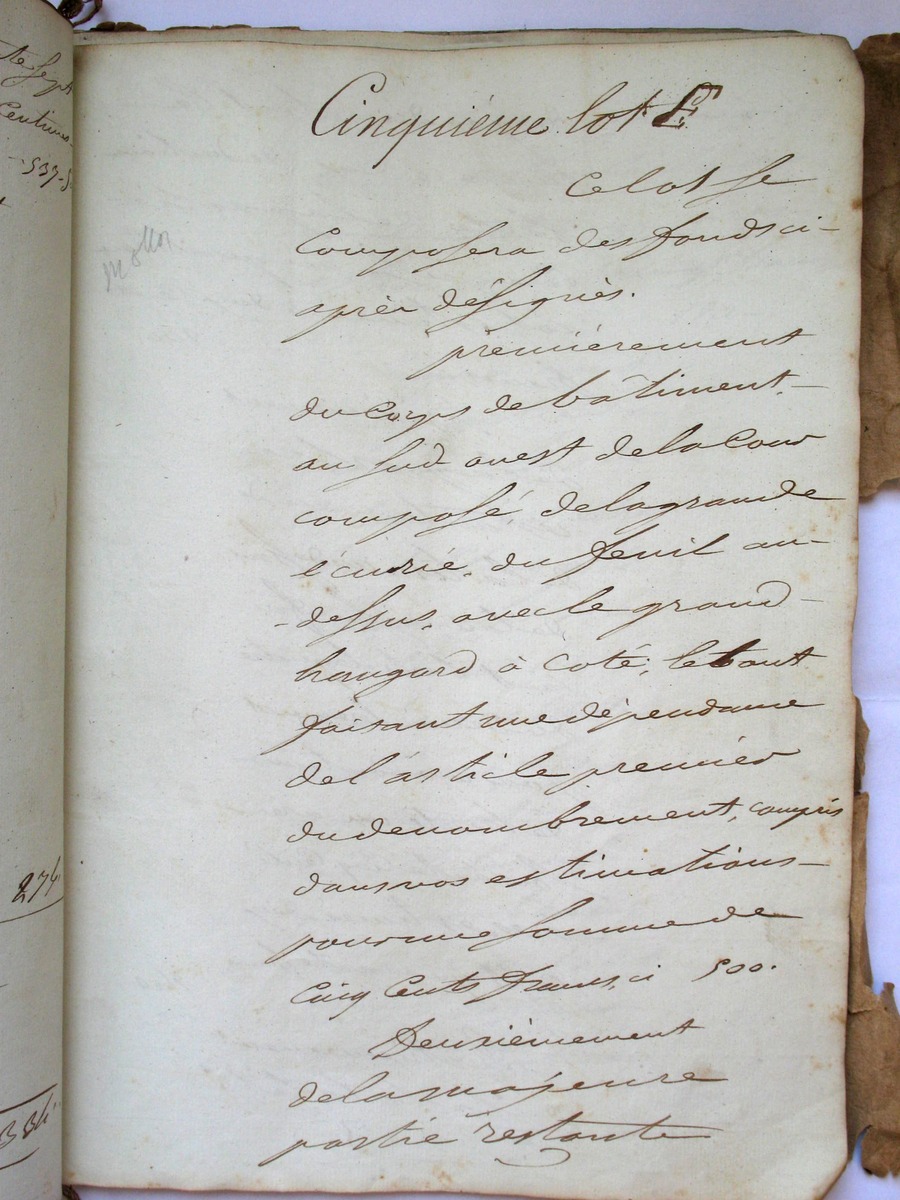 te sept
Centimes
- 537-5
274
334
Cinquième lot E
Ce lot se
Composera des fonds ci-
après désignés.
premièrement
du Corps de bâtiment
au sud ouest de la Cour
composé, de la grande
écurie, du fenil au-
-dessus, avec le grand
hangard à Coté, le tout
faisant une dépendance
de l'article premier
du denombrement, compris
dans nos estimations
pour une somme de
Cinq Cents francs, ci 500.
Deuxièmement
de la majeure
partie restante